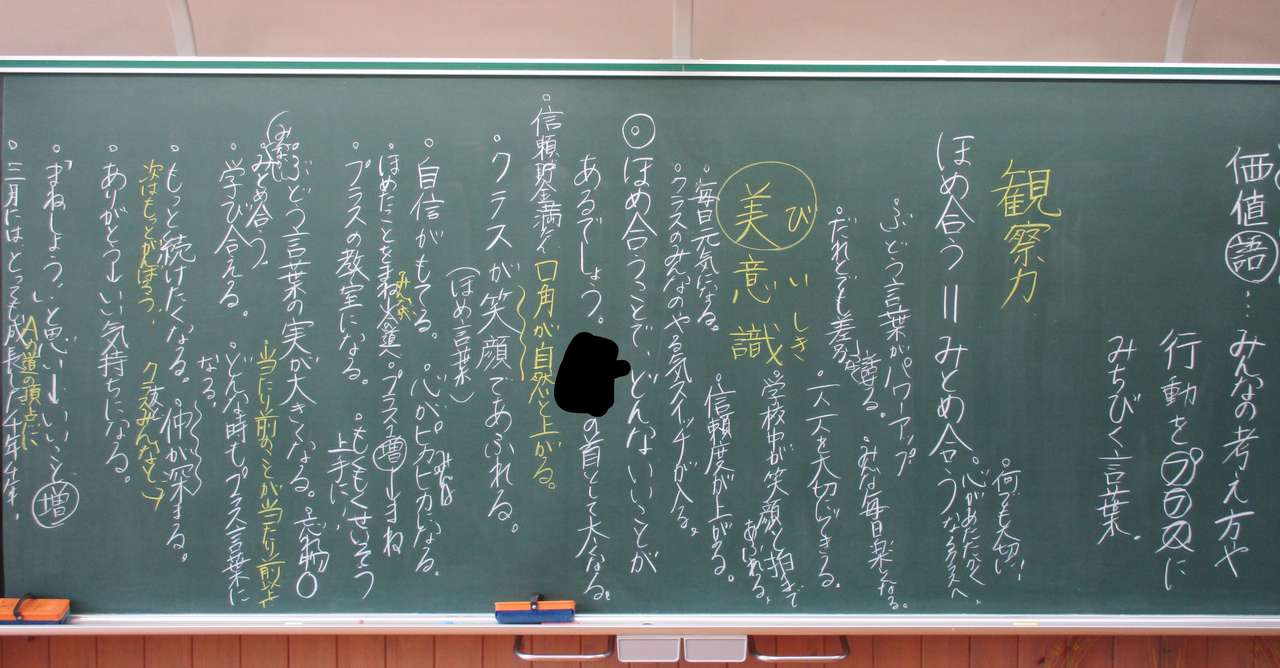 価値語…みんなの考え方や
行動をプラスに
みちびく言葉。
観察力
ほめ合う＝みとめ合う
何でも大切に!
心があたたかくなるクラスへ
ぶどう言葉がパワーアップ
みんな毎日楽しくなる。
だれとでも差なく話せる。
一人一人を大切にできる。
美意識
び いしき
学校中が笑顔と拍手で
あふれる。
・毎日元気になる。
・信頼度が上がる。
・クラスのみんなのやる気スイッチが入る。
◎ほめ合うことで、どんないいことが
あるでしょう。
の首として大なる。
・信頼貯金満と
口角が自然と上がる。
・クラスが笑顔であふれる。
(ほめ言葉)
・自信がもてる。
・心がピカピカになる。
・ほめたことをまね
・プラス増しまね
・プラスの教室になる。
・もくもくせいそう
上手に
・ぶどう言葉の実が大きくなる。
忘れ物〇
みとめ合う。
当たり前のことが当たり前以上
・学び合える。
・どんな時もプラス言葉に
なる。
・もっと続けたくなる。
・仲が深まる。
次はもっとがんばろう。
クラスみんなで
・ありがとう↓いい気持ちになる。
・「まねしよう」いと思い↓いいこと増
Aの道の頂点に
・三月にはとっても成長